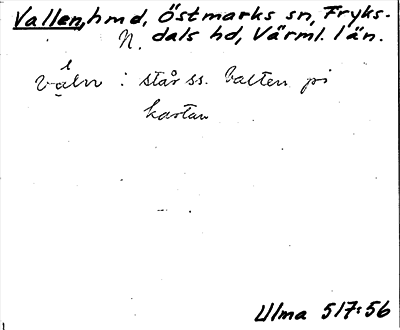 Vallen, hmd, Östmarks sn, Fryks-
N. dals hd, Värml. län.
står ss. Vallen på
kartan
Ulma 517:56